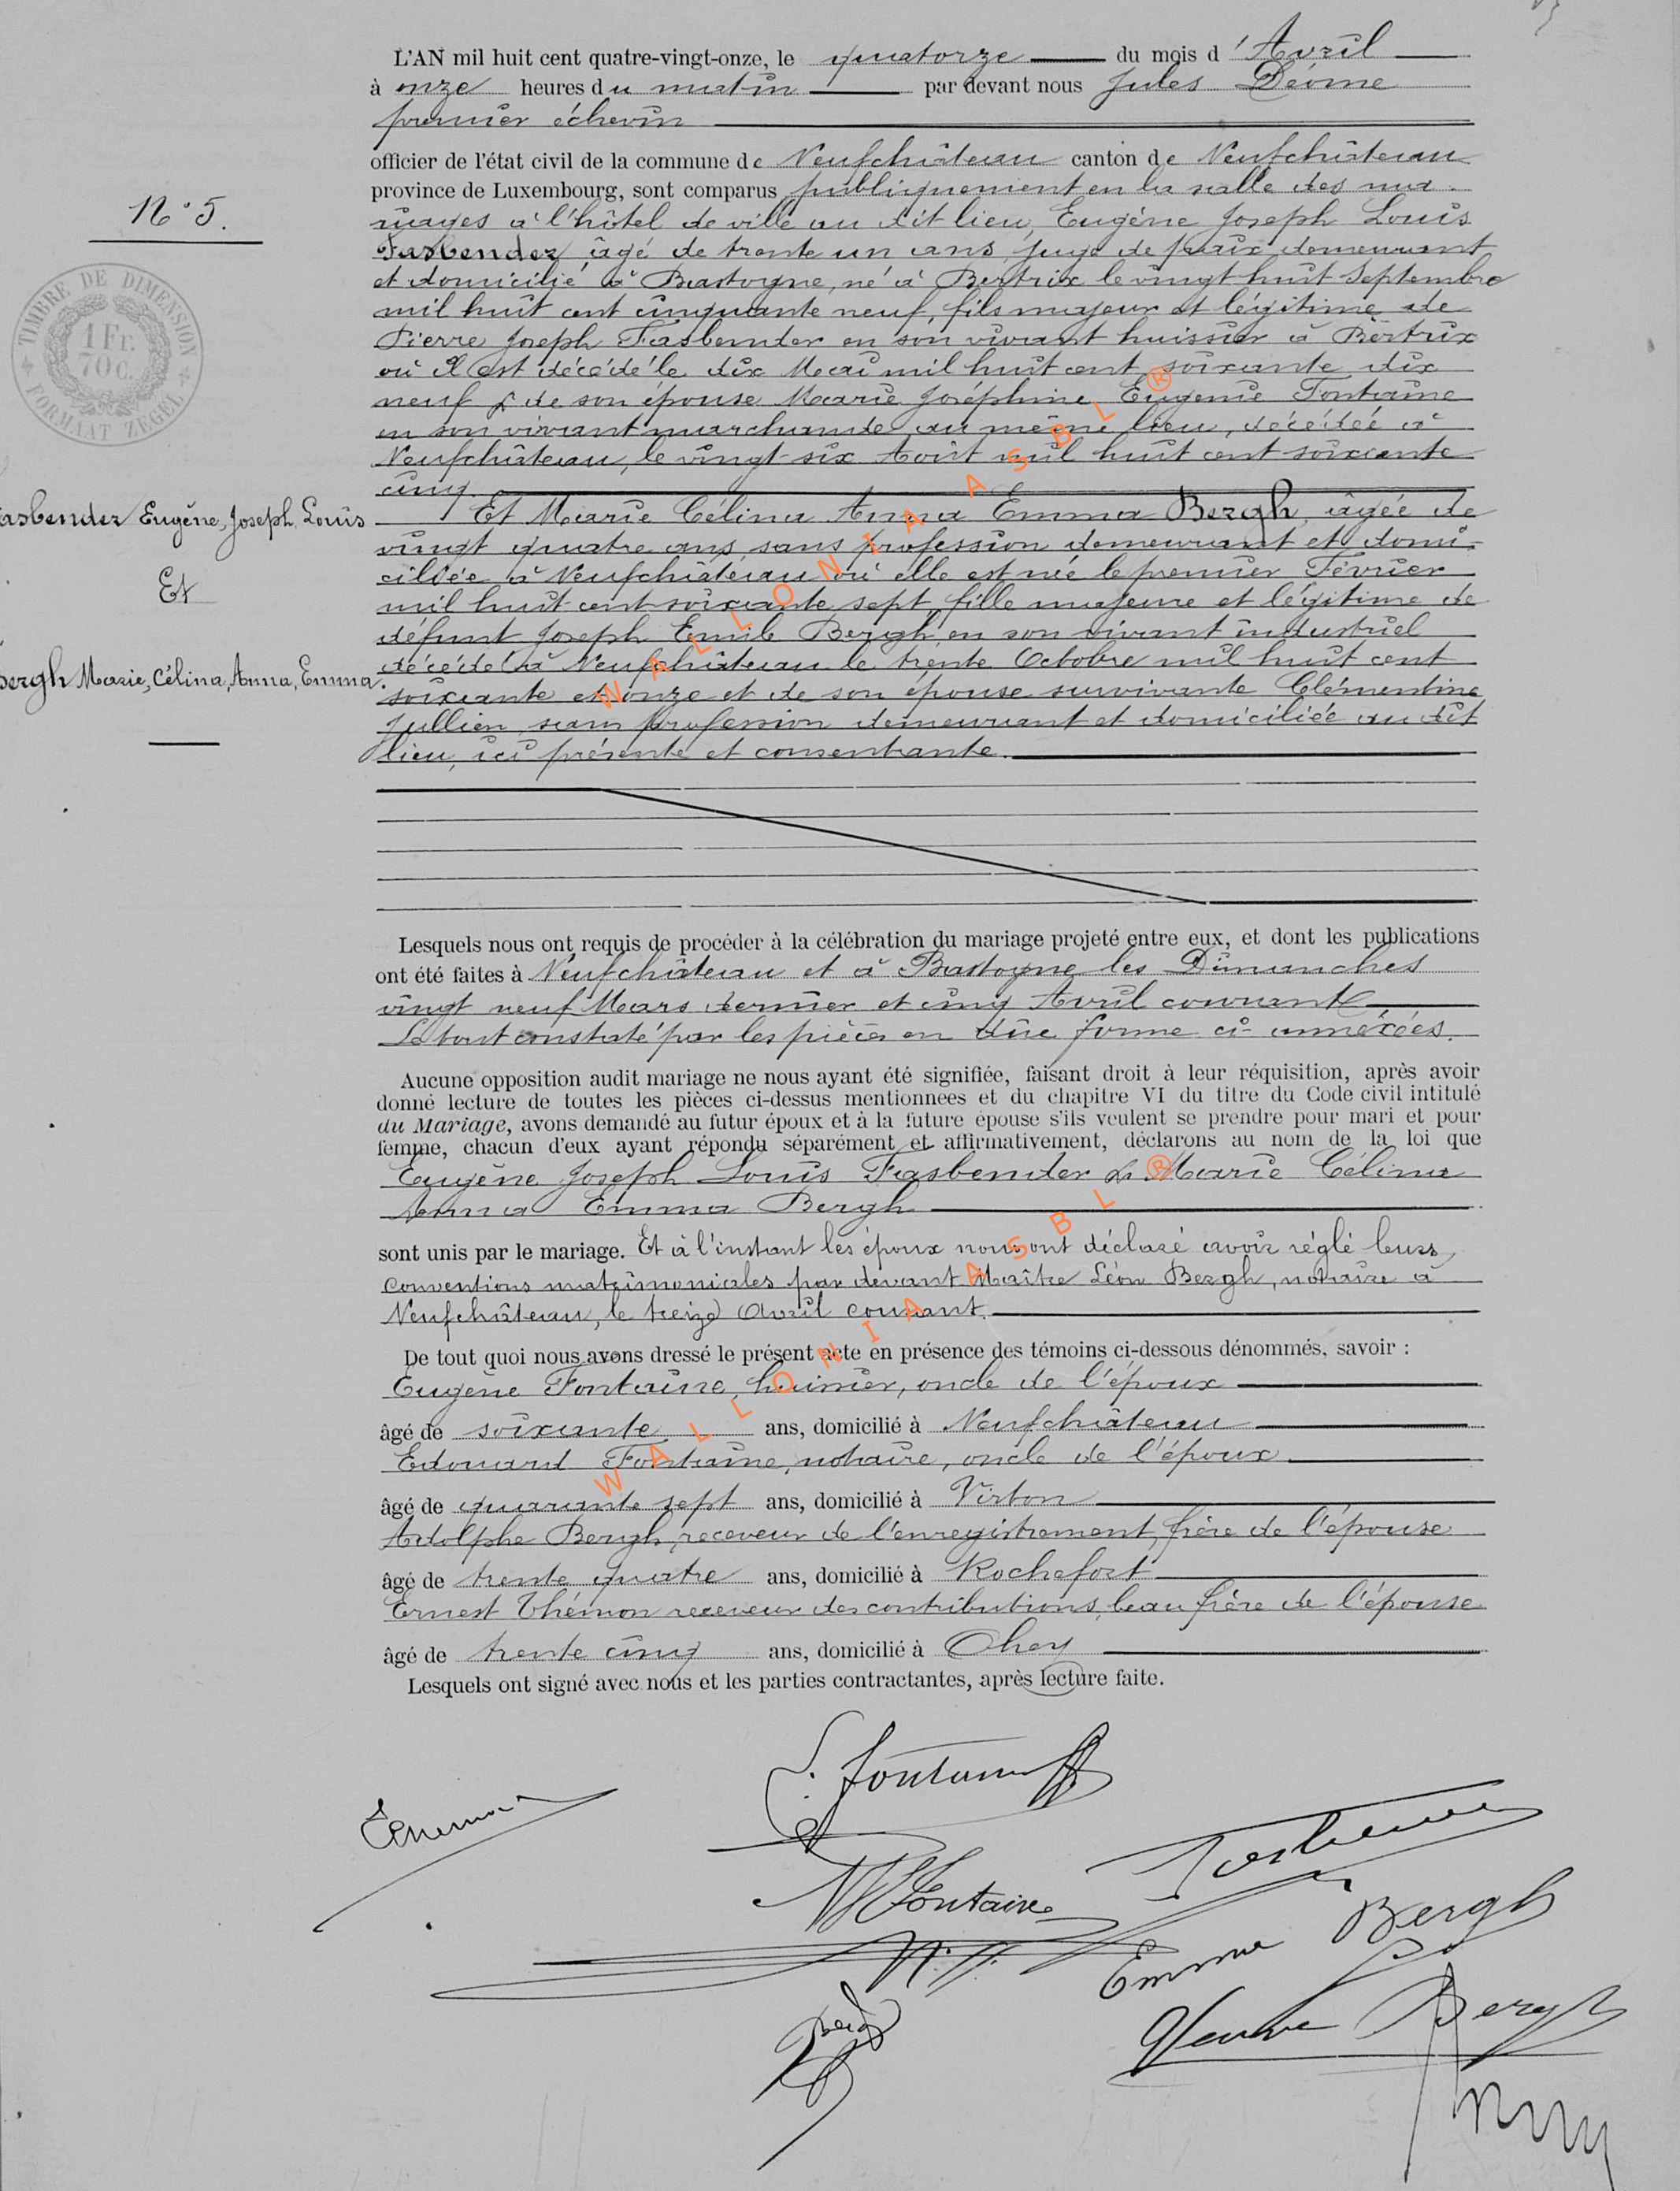 L'AN mil huit cent quatre-vingt-onze, le quatorze du mois d'Avril
à onze heures du matin par devant nous Jules Déome
premier échevin
officier de l'état civil de la commune de Neufchâteau canton de Neufchâteau
province de Luxembourg, sont comparus publiquement en la salle des ma-
N° 5.
riages à l'hôtel de ville au dit lieu, Eugène Joseph Louis
Fasbender âgé de trente un ans, juge de paix demeurant
et domicilié à Bastogne, né à Bertrix le vingt huit Septembre
mil huit cent cinquante neuf, fils majeur et légitime de
TIMBRE DE DIMENSION
1 Fr.
70 C.
FORMAAT ZEGEL
Pierre Joseph Fasbender en son vivant huissier à Bertrix
où il est décédé le dix Mai mil huit cent soixante dix
neuf & de son épouse Marie Joséphine Eugénie Fontaine
en son vivant marchande au même lieu, décédée à
Neufchâteau, le vingt-six Août mil huit cent soixante
cinq.
Fasbender Eugène, Joseph, Louis
Et
Bergh Marie, Célina, Anna, Emma.
Et Marie Célina Anna Emma Bergh, âgée de
vingt quatre ans, sans profession demeurant et domi-
ciliée à Neufchâteau où elle est née le premier Février
mil huit cent soixante sept, fille majeure et légitime de
défunt Joseph Emile Bergh en son vivant industriel
décédé à Neufchâteau le trente Octobre mil huit cent
soixante et onze et de son épouse survivante Clémentine
Jullien, sans profession demeurant et domiciliée au dit
lieu, ici présente et consentante.
Lesquels nous ont requis de procéder à la célébration du mariage projeté entre eux, et dont les publications
ont été faites à Neufchâteau et à Bastogne les Dimanches
vingt neuf Mars dernier et cinq Avril courant
Le tout constaté par les pièces en due forme ci-annéxées.
Aucune opposition audit mariage ne nous ayant été signifiée, faisant droit à leur réquisition, après avoir
donné lecture de toutes les pièces ci-dessus mentionnees et du chapitre VI du titre du Code civil intitulé
du Mariage, avons demandé au futur époux et à la future épouse s'ils veulent se prendre pour mari et pour
femme, chacun d'eux ayant répondu séparément et affirmativement, déclarons au nom de la loi que
Eugène Joseph Louis Fasbender & Marie Célina
Anna Emma Bergh
sont unis par le mariage. Et à l'instant les époux nous ont déclaré avoir réglé leurs
conventions matrimoniales par devant Maître Léon Bergh, notaire à
Neufchâteau, le treize avril courant.
De tout quoi nous avons dressé le présent acte en présence des témoins ci-dessous dénommés, savoir :
Eugène Fontaine, huissier, oncle de l'époux
âgé de soixante ans, domicilié à Neufchâteau
Edouard Fontaine, notaire, oncle de l'époux
âgé de quarante sept ans, domicilié à Virton
Adolphe Bergh, receveur de l'enregistrement, frère de l'épouse
âgé de trente quatre ans, domicilié à Rochefort
Ernest Thémon receveur des contributions, beau frère de l'épouse
âgé de trente cinq ans, domicilié à Ohey
Lesquels ont signé avec nous et les parties contractantes, après lecture faite.
WALLONIA ASBL ®
WALLONIA ASBL ®
E. Fontaine
Fontaine
Emma Bergh
Bergh